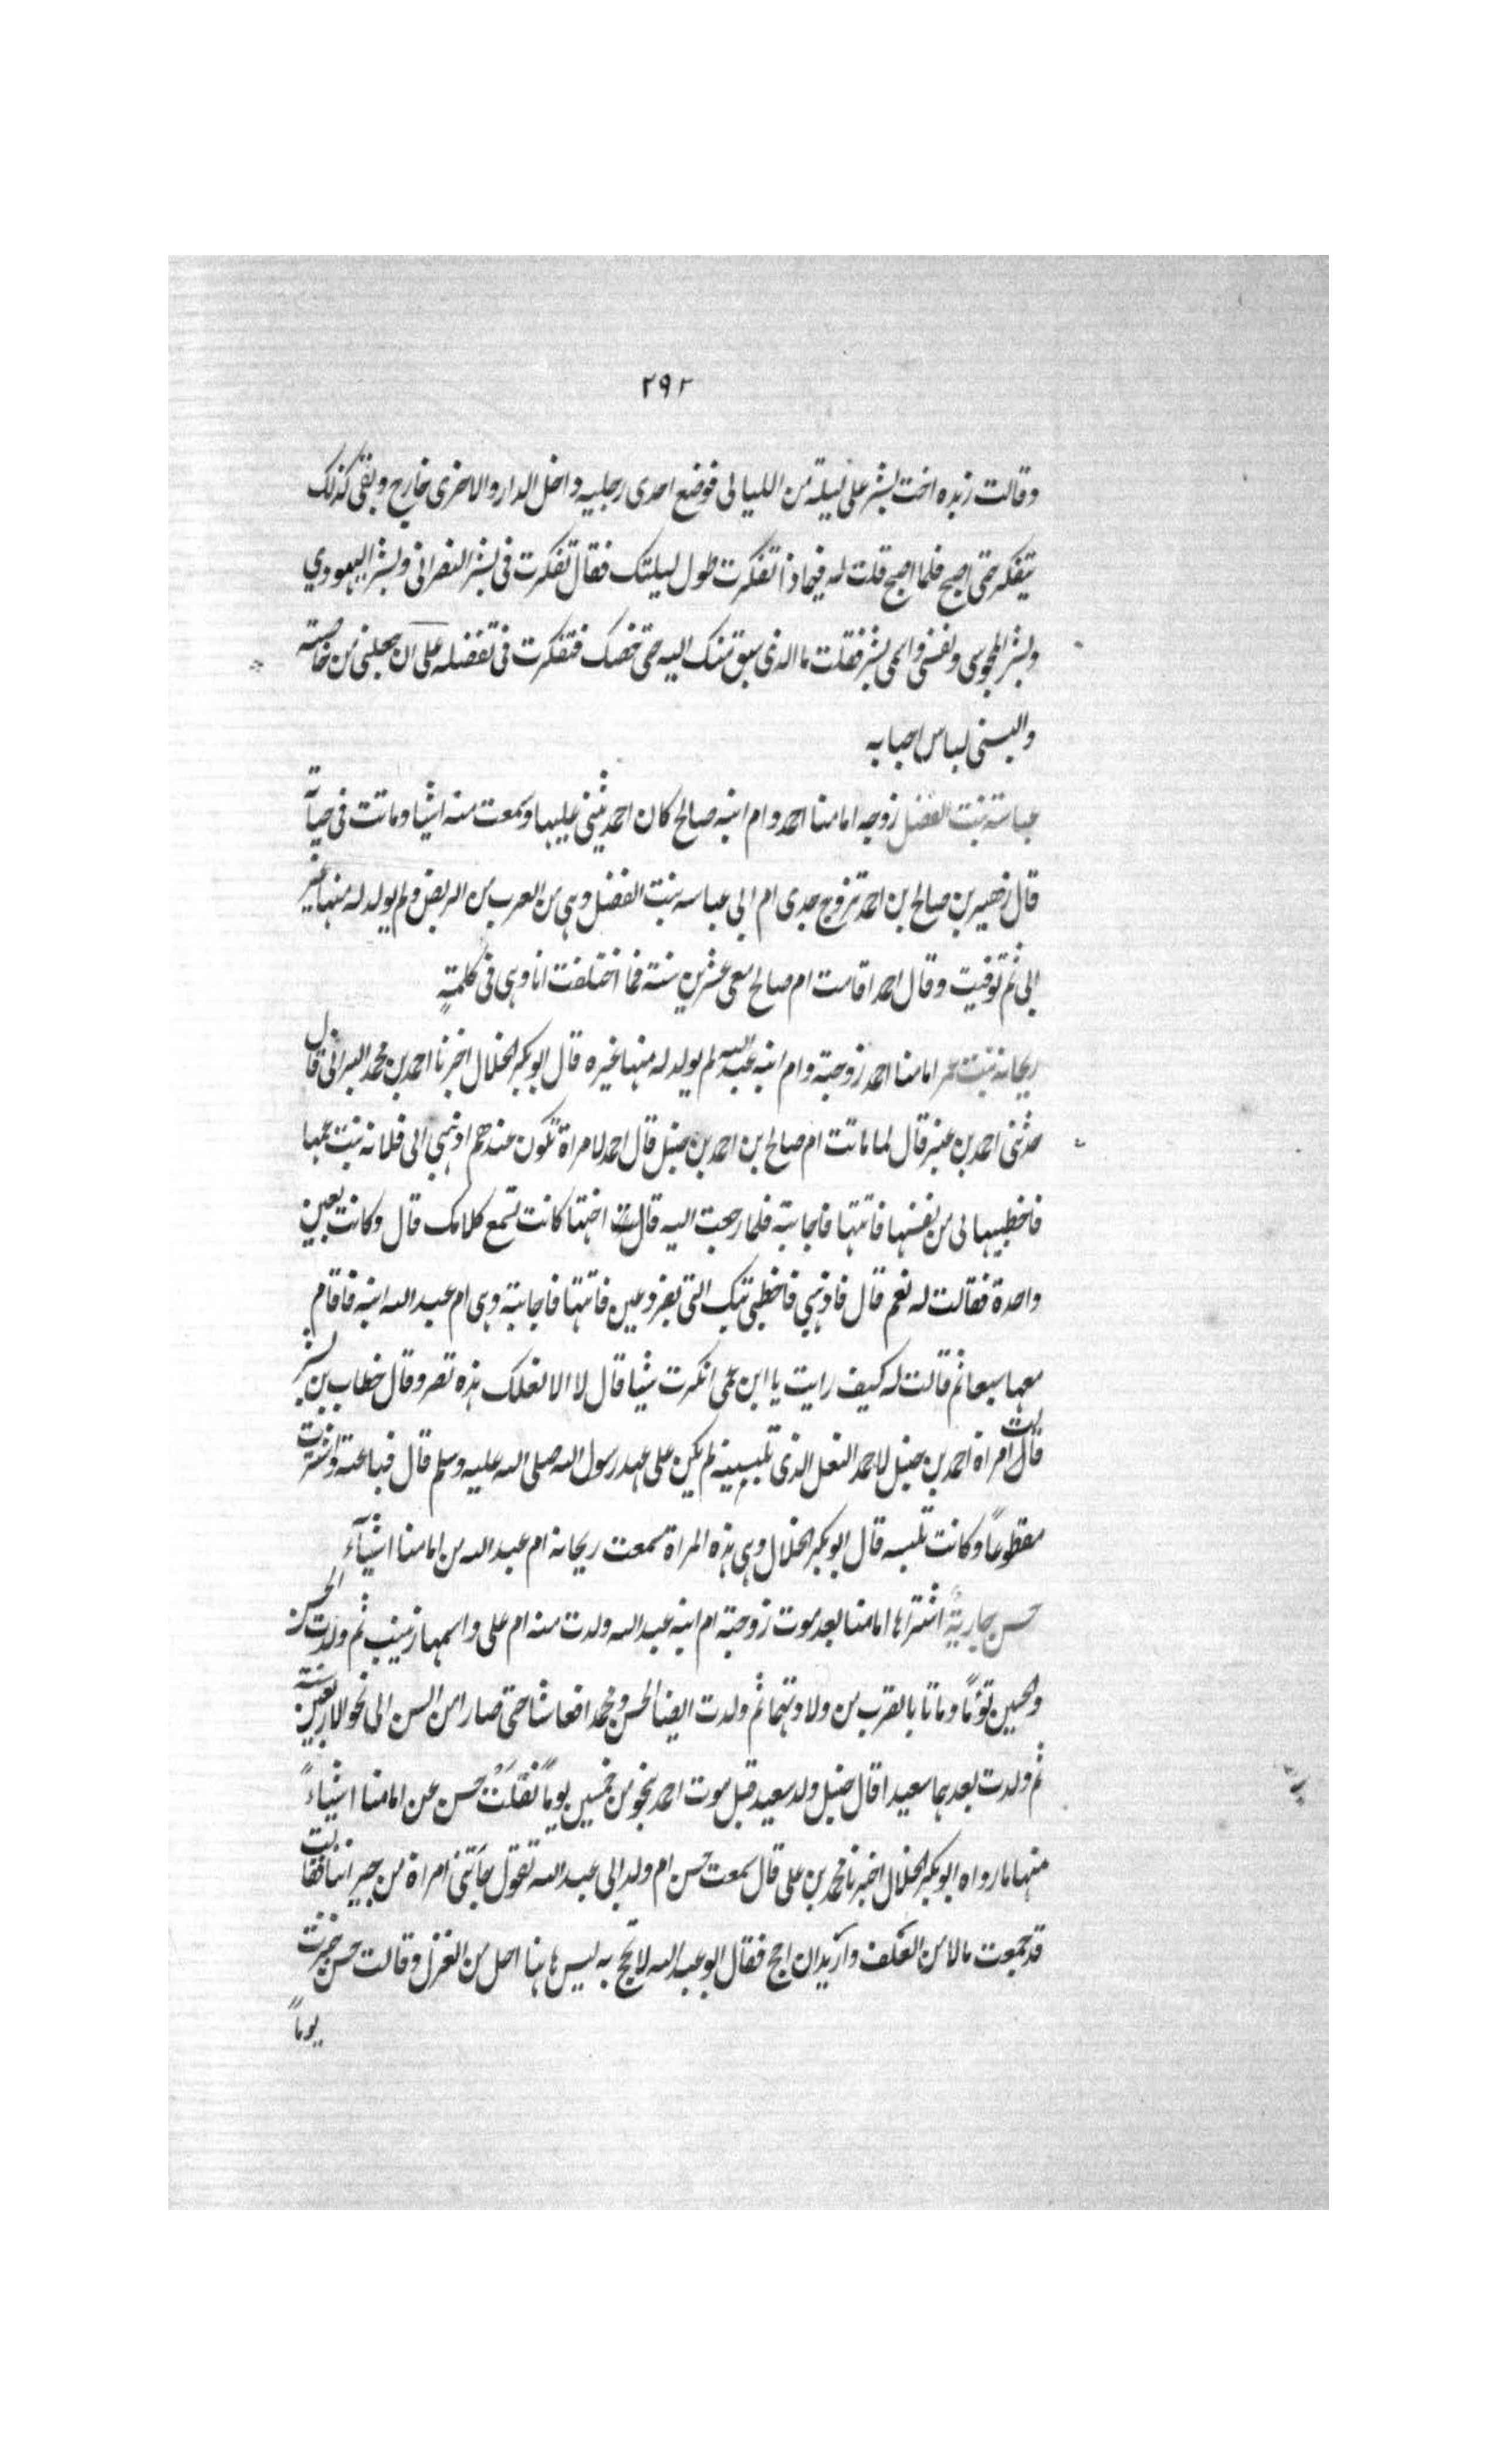 ٢٩٢
وقالت زبده اخت بشر على ليلة من الليالى فوضع احدى رجليه داخل الدار والاخرى خارج وبقى كذلك
يتفكر حتى اصبح فلما اصبح قلت له فيما ذا تفكرت طول ليلتك فقال تفكرت فى بشر النصرانى وبشر اليهودي
وبشر المجوسى ونفسى واسمى بشر فقلت ما الذى سبق منك اليه حتى خصك فتفكرت فى تفضله على ان جعلنى من خاصته
والبسنى لباس احبابه
عباسة بنت الفضل زوجه امامنا احمد وام ابنه صالح كان احمد يثنى عليها وسمعت منه اشيا وماتت فى حياته
قال زهير بن صالح بن احمد تزوج جدى ام ابى عباسه بنت الفضل وهى من العرب من الربض ولم يولد له منها غير
ابى ثم توفيت وقال احمد اقامت ام صالح معى عشرين سنة فما اختلفت انا وهى فى كلمةٍ
ريحانه بنت عمر امامنا احمد زوجته وام ابنه عبد الله لم يولد له منها غيره قال ابو بكر الخلال اخبرنا احمد بن محمد البراثى قال
حدثنى احمد بن عنبر قال لما ماتت ام صالح ابن احمد بن حنبل قال احمد لامراة تكون عندهم اذهبى الى فلانه بنت عمها
فاخطبيها لى من نفسها فاتتها فاجابته فلما رجعت اليه قال اختها كانت تسمع كلامك قال وكانت بعين
واحدة فقالت له نعم قال فاذهبي فاخطبى تيك التى بفرد عين فاتتها فاجابته وهى ام عبد الله ابنه فاقام
معها سبعا ثم قالت له كيف رايت يا ابن عمى انكرت شيا قال لا الا نعلك هذه تصر وقال خطاب بن بشر
قالت امراة احمد بن حنبل لاحمد النعل الذى تلبسينه لم يكن على عهد رسول الله صلى الله عليه وسلم قال فباعته واشترت
مقطوعاً وكانت تلبسه قال ابو بكر الخلال وهى هذه المراة سمعت ريحانه ام عبد الله من امامنا اشيآء
حسن جاريةٌ اشتراها امامنا بعد موت زوجته ام ابنه عبد الله ولدت منه ام على واسمها زينب ثم ولدت الحسن
والحسين توئماً وماتا بالقرب من ولادتهما ثم ولدت ايضا الحسن ومحمد افعاشا حتى صارا من السن الى نحو الاربعين سنة
ثم ولدت بعدهما سعيدا قال حنبل ولد سعيد قبل موت احمد بنحو من خمسين يوماً نقلَت حسن عن امامنا اشياءً
منها ما رواه ابو بكر الخلال اخبرنا محمد بن على قال سمعت حسن ام ولد ابى عبد الله تقول جآتنى امراة من جيراننا فقالت
قد جمعت مالا من العكف واريد ان احج فقال ابو عبد الله لا تحج به ليس هاهنا احل من الغزل وقالت حسن خبزت
يوماً